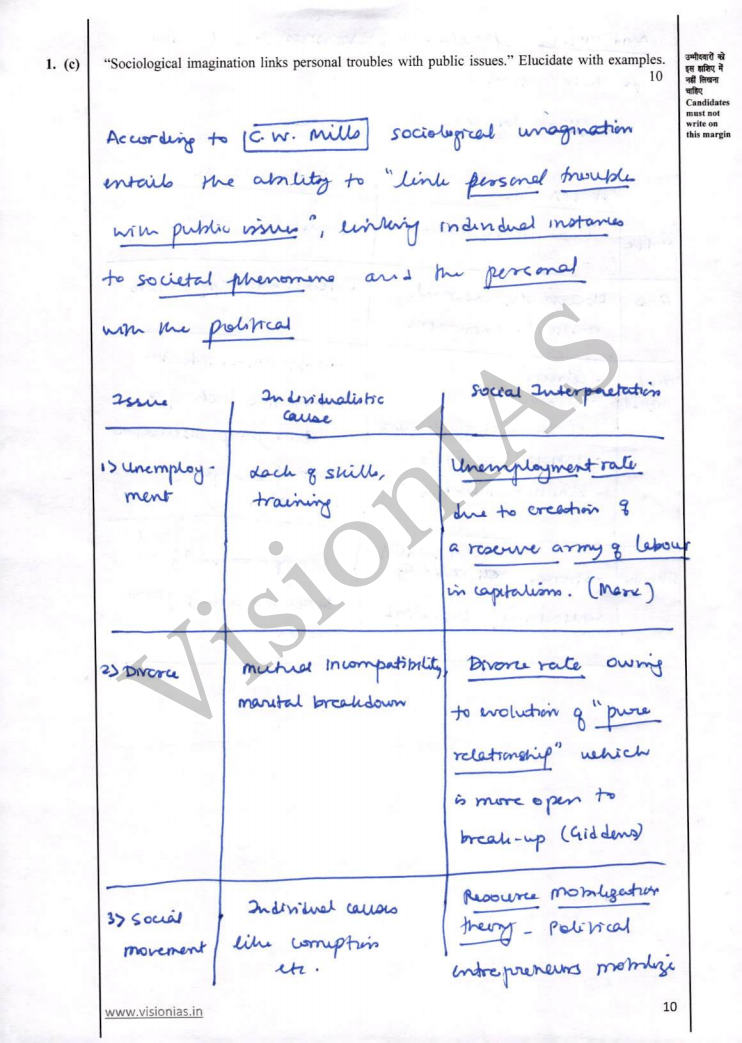 1. (c) "Sociological imagination links personal troubles with public issues." Elucidate with examples.
10
उम्मीदवारों को
इस हाशिए में
नहीं लिखना
चाहिए
Candidates
must not
write on
this margin
According to C. W. Mills sociological imagination
entails the ability to "link personal trouble
with public issues", linking individual instances
to societal phenomena and the personal
with the political
Issue
Individualistic
cause
Social Interpretation
1) Unemploy-
ment
Lack of skills,
training
Unemployment rate
due to creation of
a reserve army of labour
in capitalism. (Marx)
2) Divorce
Mutual incompatibility,
marital breakdown
Divorce rate owing
to evolution of "pure
relationship" which
is more open to
break-up (Giddens)
3) Social
movement
Individual causes
like corruption
etc.
Resource mobilization
theory - Political
entrepreneurs mobilize
VisionIAS
www.visionias.in
10